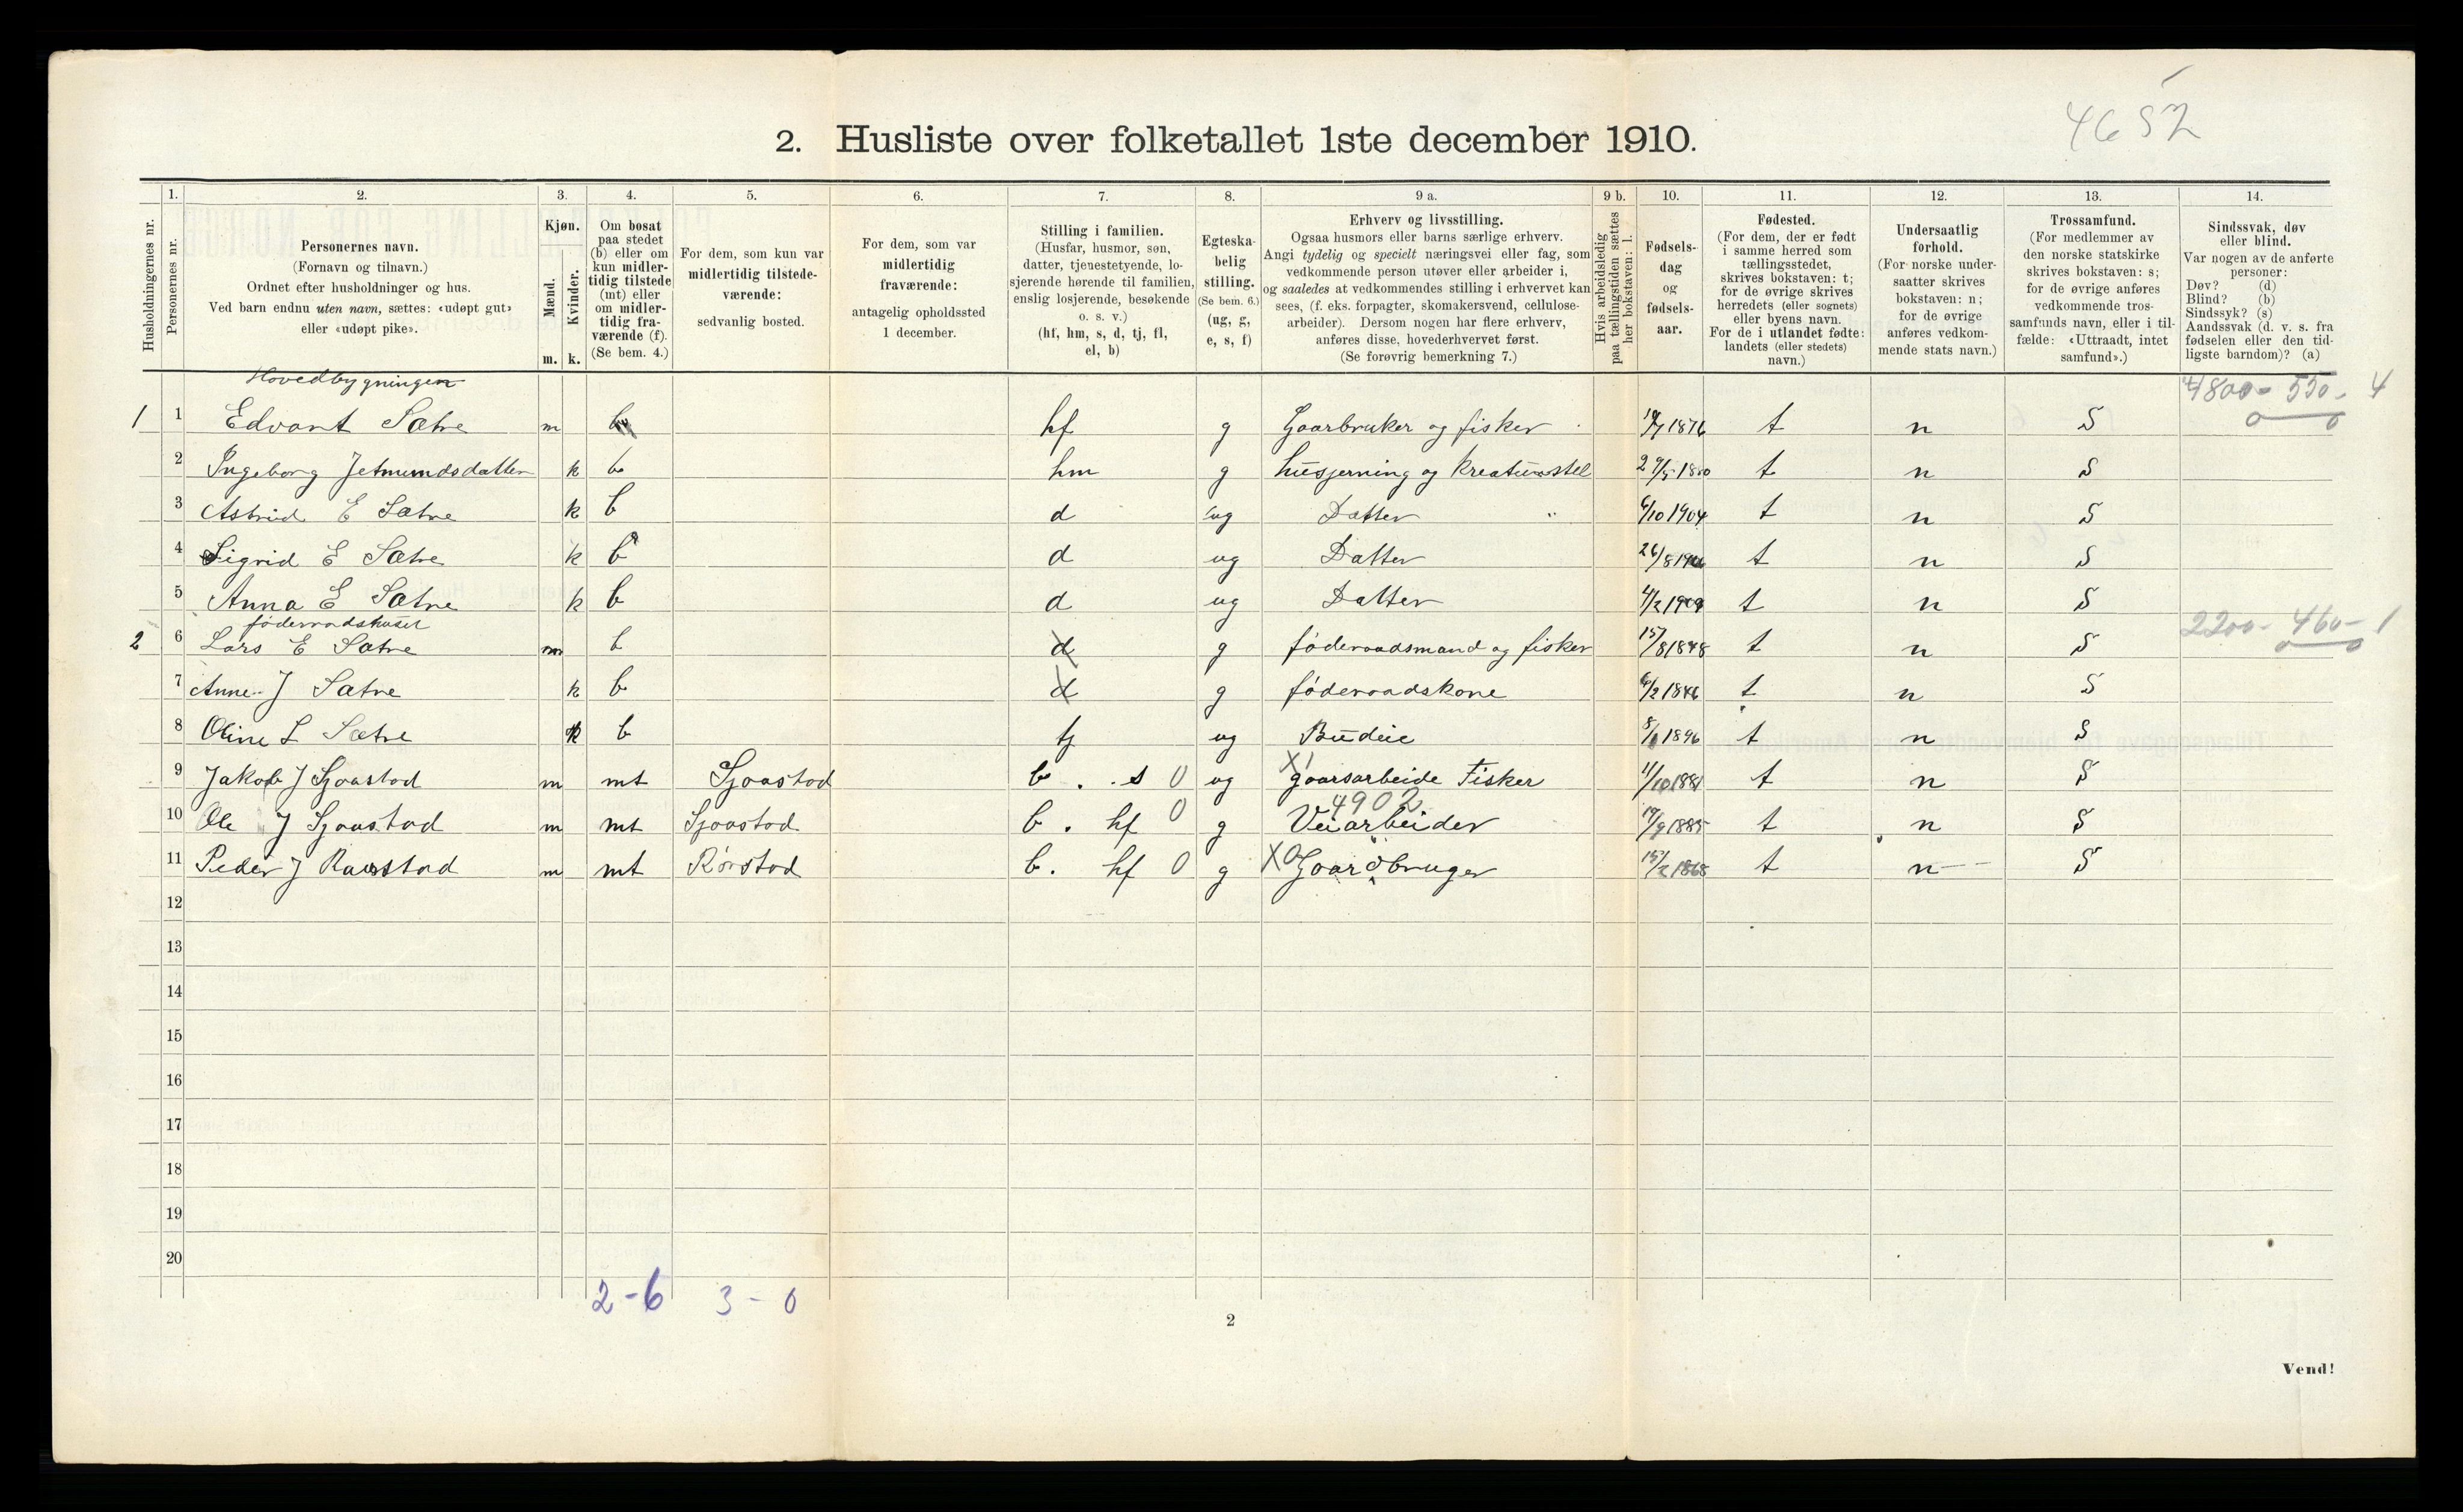 4652
2. Husliste over folketallet 1ste december 1910.
Husholdningernes nr.
1.
Personernes nr.
2.
Personernes navn.
(Fornavn og tilnavn.)
Ordnet efter husholdninger og hus.
Ved barn endnu uten navn, sættes: «udøpt gut»
eller «udøpt pike».
3.
Kjøn.
Mænd.
Kvinder.
m. k.
4.
Om bosat
paa stedet
(b) eller om
kun midler-
tidig tilstede
(mt) eller
om midler-
tidig fra-
værende (f).
(Se bem. 4.)
5.
For dem, som kun var
midlertidig tilstede-
værende:
sedvanlig bosted.
6.
For dem, som var
midlertidig
fraværende:
antagelig opholdssted
1 december.
7.
Stilling i familien.
(Husfar, husmor, søn,
datter, tjenestetyende, lo-
sjerende hørende til familien,
enslig losjerende, besøkende
o. s. v.)
(hf, hm, s, d, tj, fl,
el, b)
8.
Egteska-
belig
stilling.
(Se bem. 6.)
(ug, g,
e, s, f)
9 a.
Erhverv og livsstilling.
Ogsaa husmors eller barns særlige erhverv.
Angi tydelig og specielt næringsvei eller fag, som
vedkommende person utøver eller arbeider i,
og saaledes at vedkommendes stilling i erhvervet kan
sees, (f. eks. forpagter, skomakersvend, cellulose-
arbeider). Dersom nogen har flere erhverv,
anføres disse, hovederhvervet først.
(Se forøvrig bemerkning 7.)
9 b.
Hvis arbeidsledig
paa tællingstiden sættes
her bokstaven: l.
10.
Fødsels-
dag
og
fødsels-
aar.
11.
Fødested.
(For dem, der er født
i samme herred som
tællingsstedet,
skrives bokstaven: t;
for de øvrige skrives
herredets (eller sognets)
eller byens navn.
For de i utlandet fødte:
landets (eller stedets)
navn.)
12.
Undersaatlig
forhold.
(For norske under-
saatter skrives
bokstaven: n;
for de øvrige
anføres vedkom-
mende stats navn.)
13.
Trossamfund.
(For medlemmer av
den norske statskirke
skrives bokstaven: s;
for de øvrige anføres
vedkommende tros-
samfunds navn, eller i til-
fælde: «Uttraadt, intet
samfund».)
14.
Sindssvak, døv
eller blind.
Var nogen av de anførte
personer:
Døv? (d)
Blind? (b)
Sindssyk? (s)
Aandssvak (d. v. s. fra
fødselen eller den tid-
ligste barndom)? (a)
Hovedbygningen
4800 - 550 - 4
0 0
1 1 Edvart Sætre m b hf g Gaarbruker og fisker 1876 t n S
2 Ingeborg Jetmundsdatter k b hm g husgjerning og kreaturstel 29/5 1880 t n S
3 Astrid E Sætre k b d ug Datter " 6/10 1904 t n S
4 Sigrid E Sætre k b d ug Datter 26/8 t n S
5 Anna E Sætre k b d ug Datter 4/2 1909 t n S
føderaadshuset
2200 - 460 - 1
0 0
2 6 Lars E Sætre m b d g føderaadsmand og fisker 15/8 1848 t n S
7 Anne J Sætre k b d g føderaadskone 6/2 1846 t n S
8 Oline L Sætre k b tj ug Budeie 8/1 1896 t n S
9 Jakob J Sjaastad m mt Sjaastad b . s 0 ug X1 gaarsarbeide Fisker 11/10 1881 t n S
4902
10 Ole J Sjaastad m mt Sjaastad b . hf 0 g Veiarbeider 17/9 1885 t n S
11 Peder J Ravstad m mt Rørstad b . hf 0 g X0 Gaardbruger 15/2 1868 t n S
12
13
14
15
16
17
18
19
20
2 - 6 3 - 0
2
Vend!